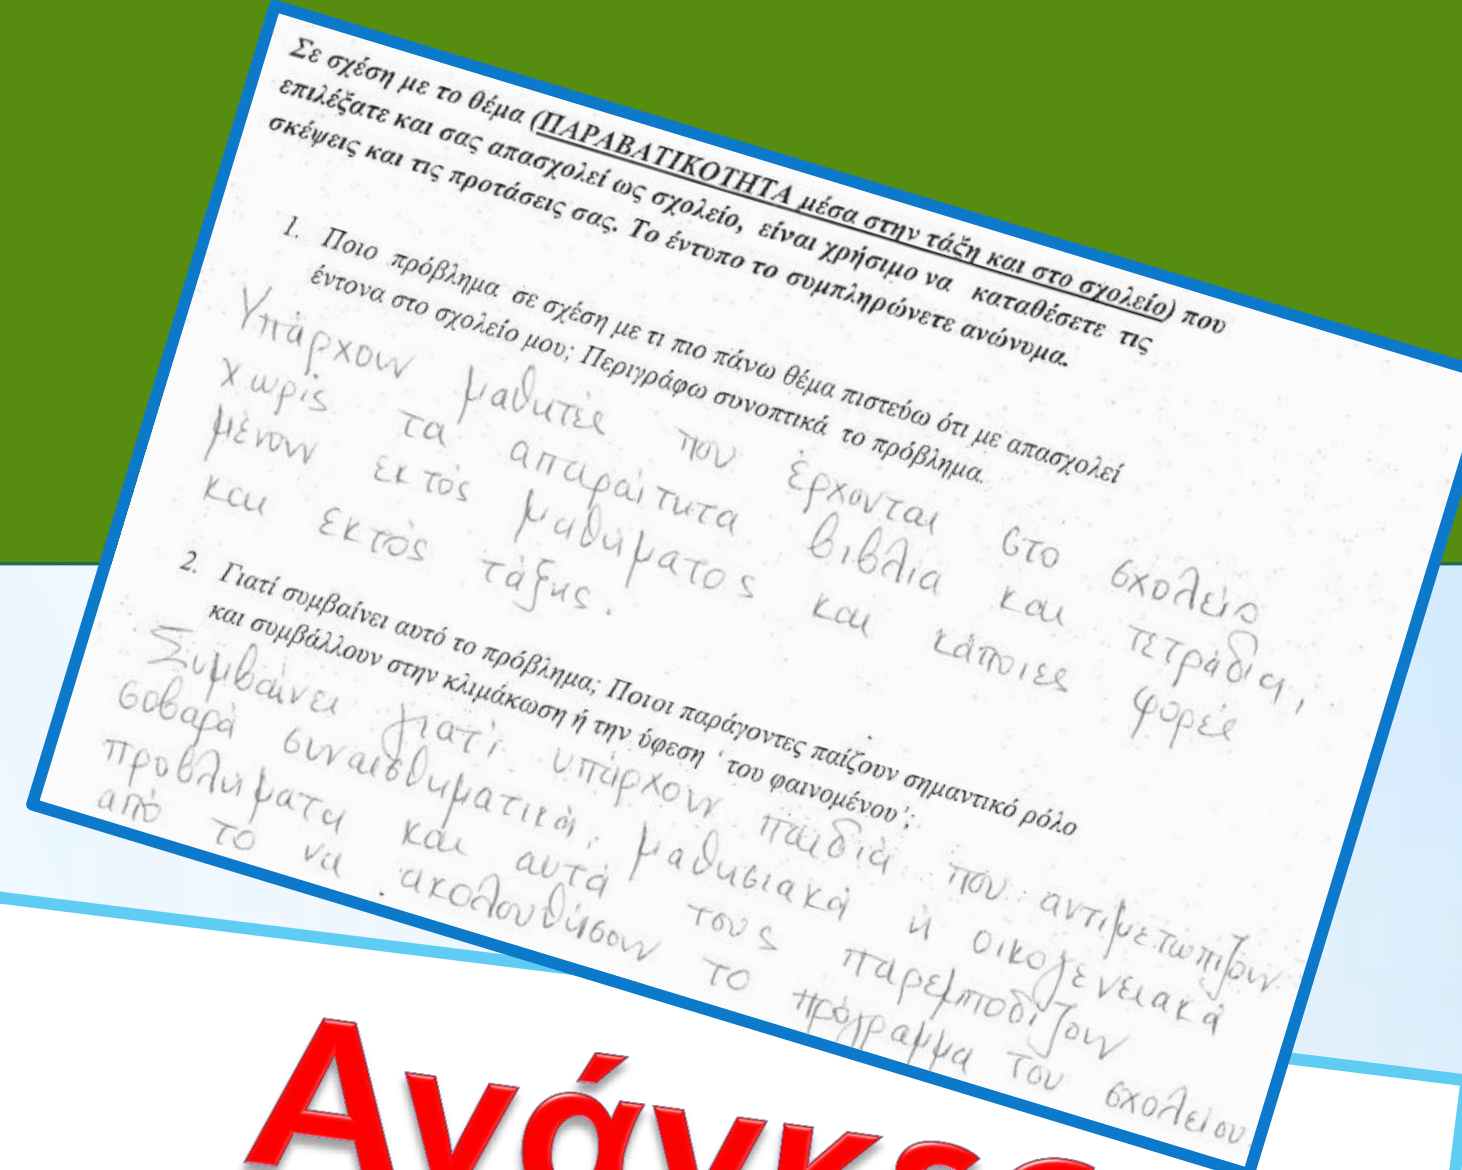 Σε σχέση με το θέμα (ΠΑΡΑΒΑΤΙΚΟΤΗΤΑ μέσα στην τάξη και στο σχολείο) που
επιλέξατε και σας απασχολεί ως σχολείο, είναι χρήσιμο να καταθέσετε τις
σκέψεις και τις προτάσεις σας. Το έντυπο το συμπληρώνετε ανώνυμα.
1. Ποιο πρόβλημα σε σχέση με τι πιο πάνω θέμα πιστεύω ότι με απασχολεί
έντονα στο σχολείο μου; Περιγράφω συνοπτικά το πρόβλημα.
Υπάρχουν μαθητές που έρχονται στο σχολείο
χωρίς τα απαραίτητα βιβλία και τετράδια,
μένουν εκτός μαθήματος και κάποιες φορές
και εκτός τάξης.
2. Γιατί συμβαίνει αυτό το πρόβλημα; Ποιοι παράγοντες παίζουν σημαντικό ρόλο
και συμβάλλουν στην κλιμάκωση ή την ύφεση ‘του φαινομένου’;
Συμβαίνει γιατί υπάρχουν παιδιά που αντιμετωπίζουν
σοβαρά συναισθηματικά, μαθησιακά ή οικογενειακά
προβλήματα και αυτά τους παρεμποδίζουν
από το να ακολουθήσουν το πρόγραμμα του σχολείου.